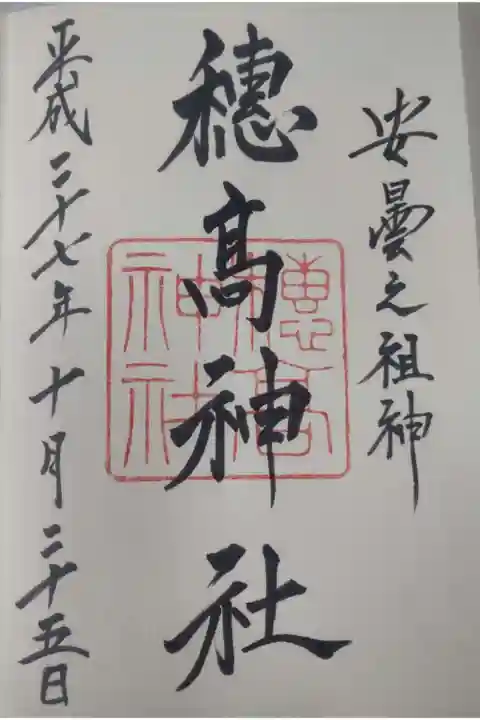 安曇之祖神
穗髙神社
平成二十七年十月二十五日
穗高
神社